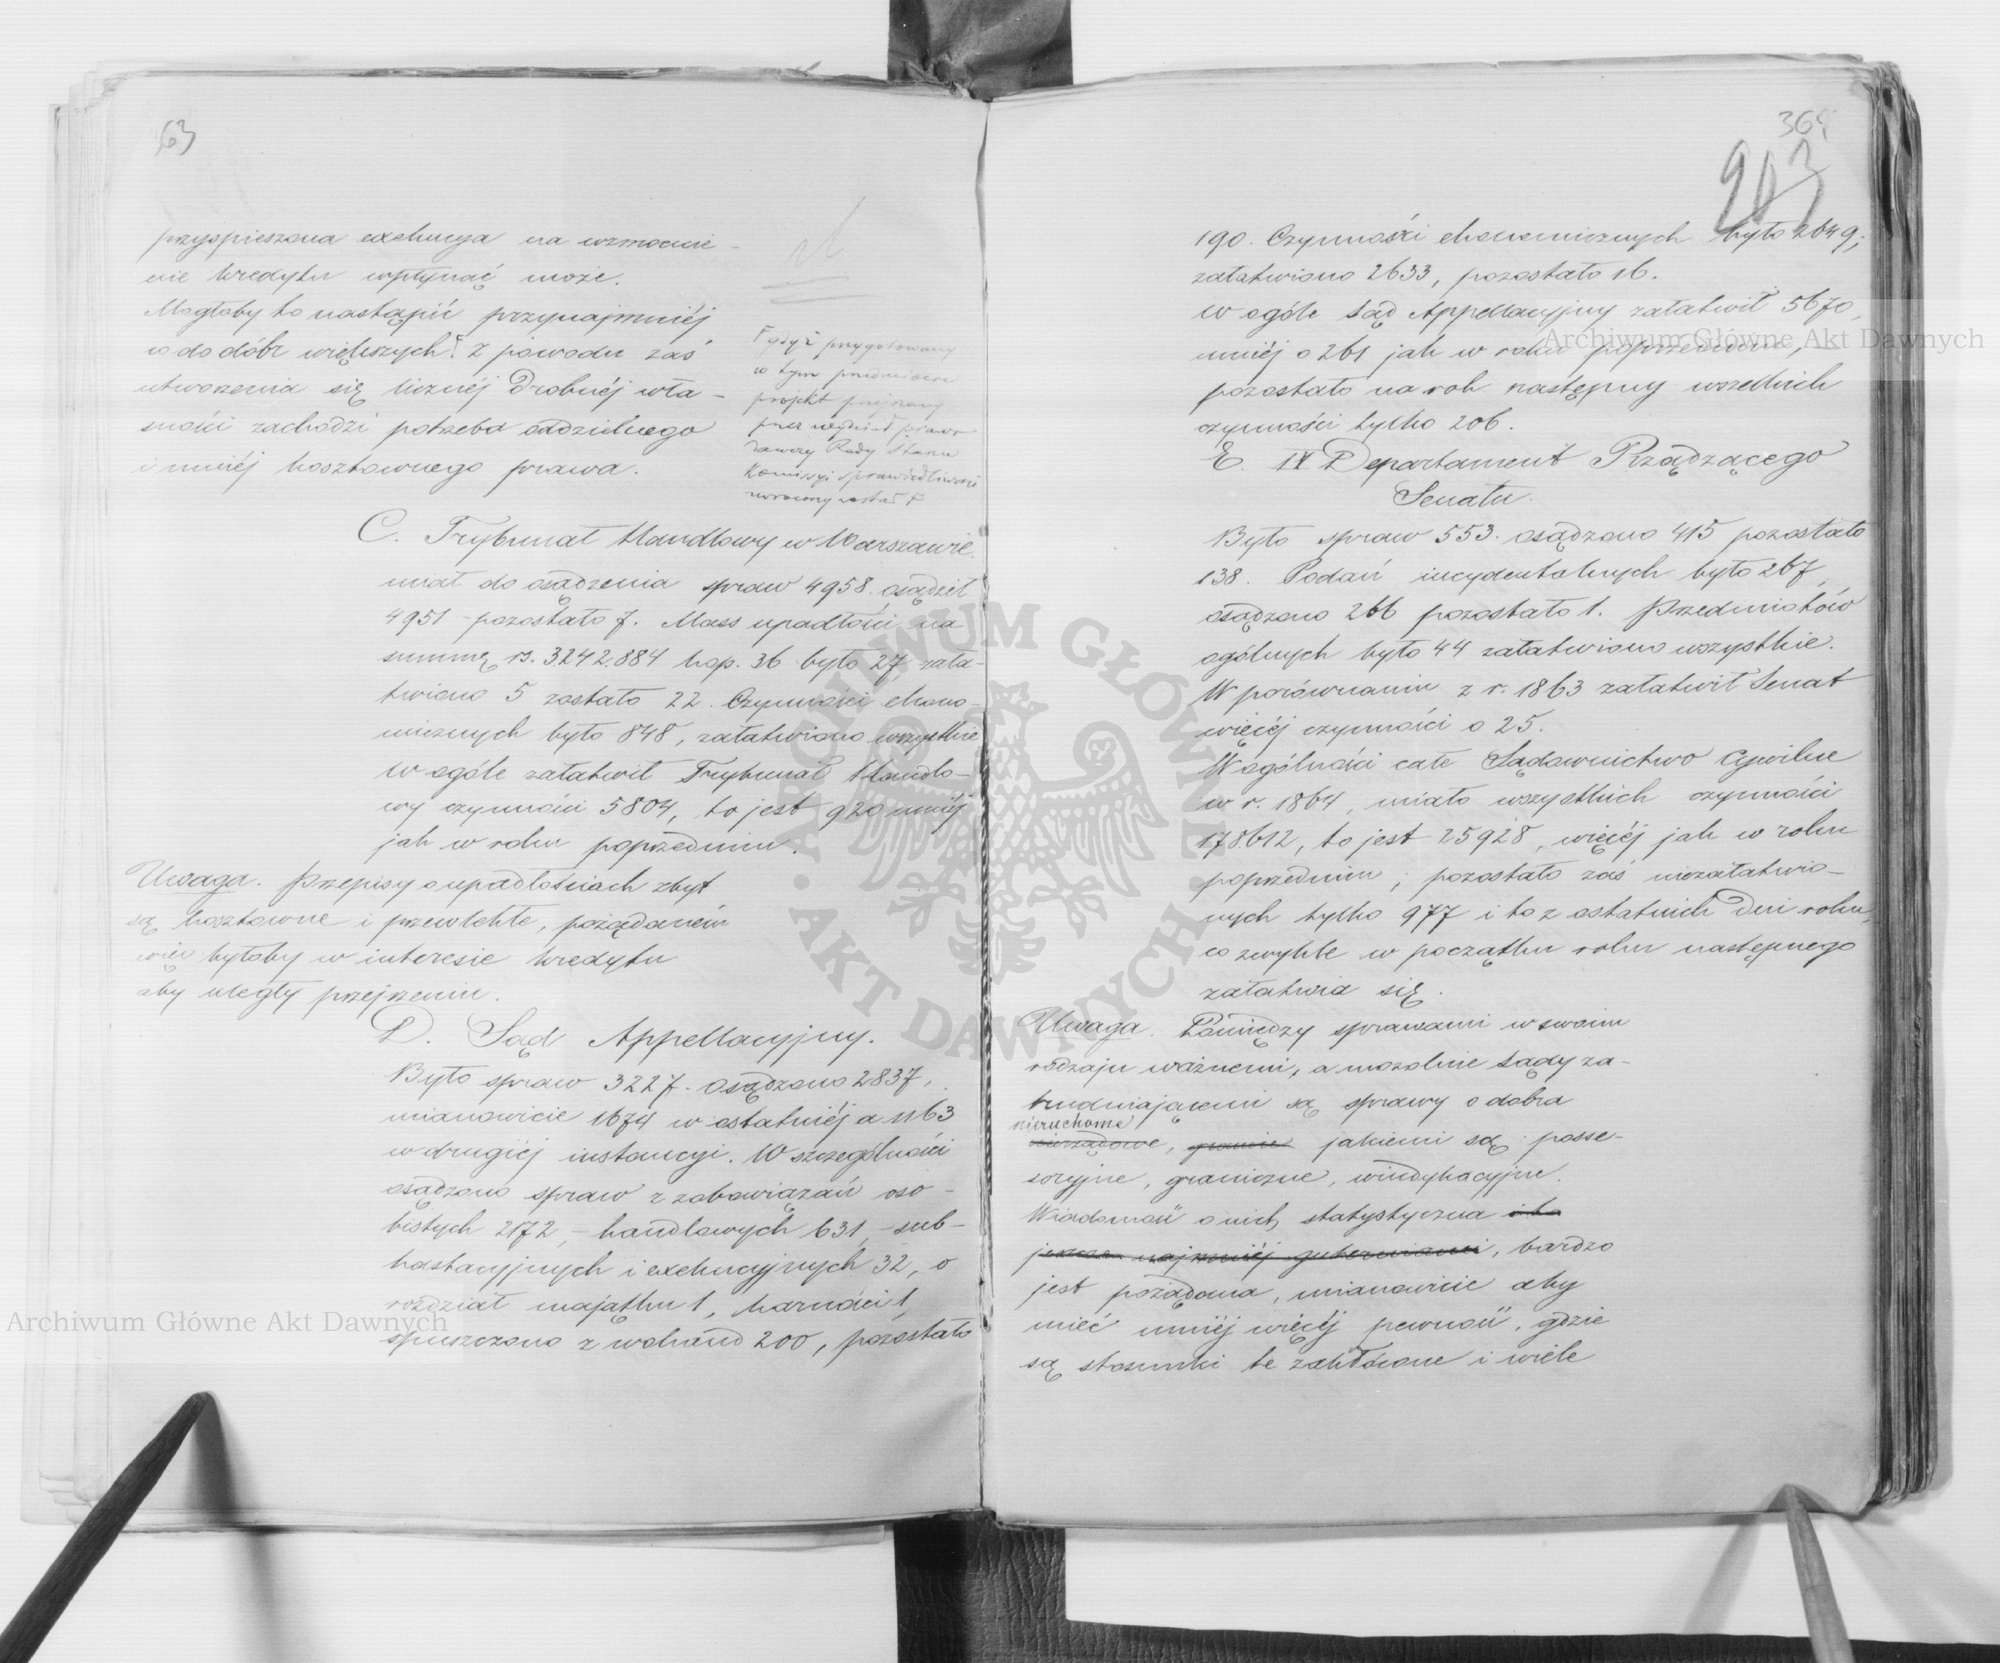 63
przyspieszona exekucya na wzmocnie-
nie kredytu wpłynąć może.
Mogłoby to nastąpić przynajmniéj
co do dóbr większych. Z powodu zaś
utworzenia się licznéj drobnéj wła-
sności zachodzi potrzeba oddzielnego
i mniéj kosztownego prawa.
gdyż przygotowany
w tym przedmiocie
projekt przejrzany
przez wydział prawo
dawczy Rady Stanu
Komissyi Sprawiedliwości
zwrócony został
C. Trybunał Handlowy w Warszawie.
miał do osądzenia spraw 4958. osądził
4951 - pozostało 7. Mass upadłości na
summę rs. 3242.884 kop. 36 było 27 zała-
twiono 5 zostało 22. Czynności ekono-
micznych było 848, załatwiono wszystkie
w ogóle załatwił Trybunał Handlo-
wy czynności 5804, to jest 920 mniéj
jak w roku poprzednim.
Uwaga. Przepisy o upadłościach zbyt
są kosztowne i przewlekłe, pożądaném
więc byłoby w interesie kredytu
aby uległy przejrzeniu.
D. Sąd Appellacyjny.
Było spraw 3227. Osądzono 2837,
mianowicie 1674 w ostatniéj a 1163
w drugiéj instancyi. W szczególności
osądzono spraw z zobowiązań oso-
bistych 2172, - handlowych 631, sub-
hastacyjnych i exekucyjnych 32, o
rozdział majątku 1, karności 1,
spuszczono z wokand 200, pozostało
364
203
190. Czynności ekonomicznych było 2649;
załatwiono 2633, pozostało 16.
W ogóle Sąd Appellacyjny załatwił 5670,
mniéj o 261 jak w roku poprzednim, -
pozostało na rok następny wszelkich
czynności tylko 206.
E. IX Departament Rządzącego
Senatu.
Było spraw 553. osądzono 415 pozostało
138. Podań incydentalnych było 267,
osądzono 266 pozostało 1. Przedmiotów
ogólnych było 44 załatwiono wszystkie.
W porównaniu z r. 1863 załatwił Senat
więcéj czynności o 25.
W ogólności całe Sądownictwo Cywilne
w r. 1864, miało wszystkich czynności
178612, to jest 25928, więcéj jak w roku
poprzednim; pozostało zaś niezałatwio-
nych tylko 977 i to z ostatnich dni roku,
co zwykle w początku roku następnego
załatwia się.
Uwaga. Pomiędzy sprawami w swoim
rodzaju ważnemi, a mozolnie Sądy za-
trudniającemi są sprawy o dobra
nieruchome
jakiemi są: posse-
soryjne, graniczne, windykacyjne.
Wiadomość o nich statystyczna
bardzo
jest pożądana, mianowicie aby
mieć mniéj więcéj pewność, gdzie
są stosunki te zakłócone i wiele
Archiwum Główne Akt Dawnych
Archiwum Główne Akt Dawnych
ARCHIWUM GŁÓWNE
AKT DAWNYCH